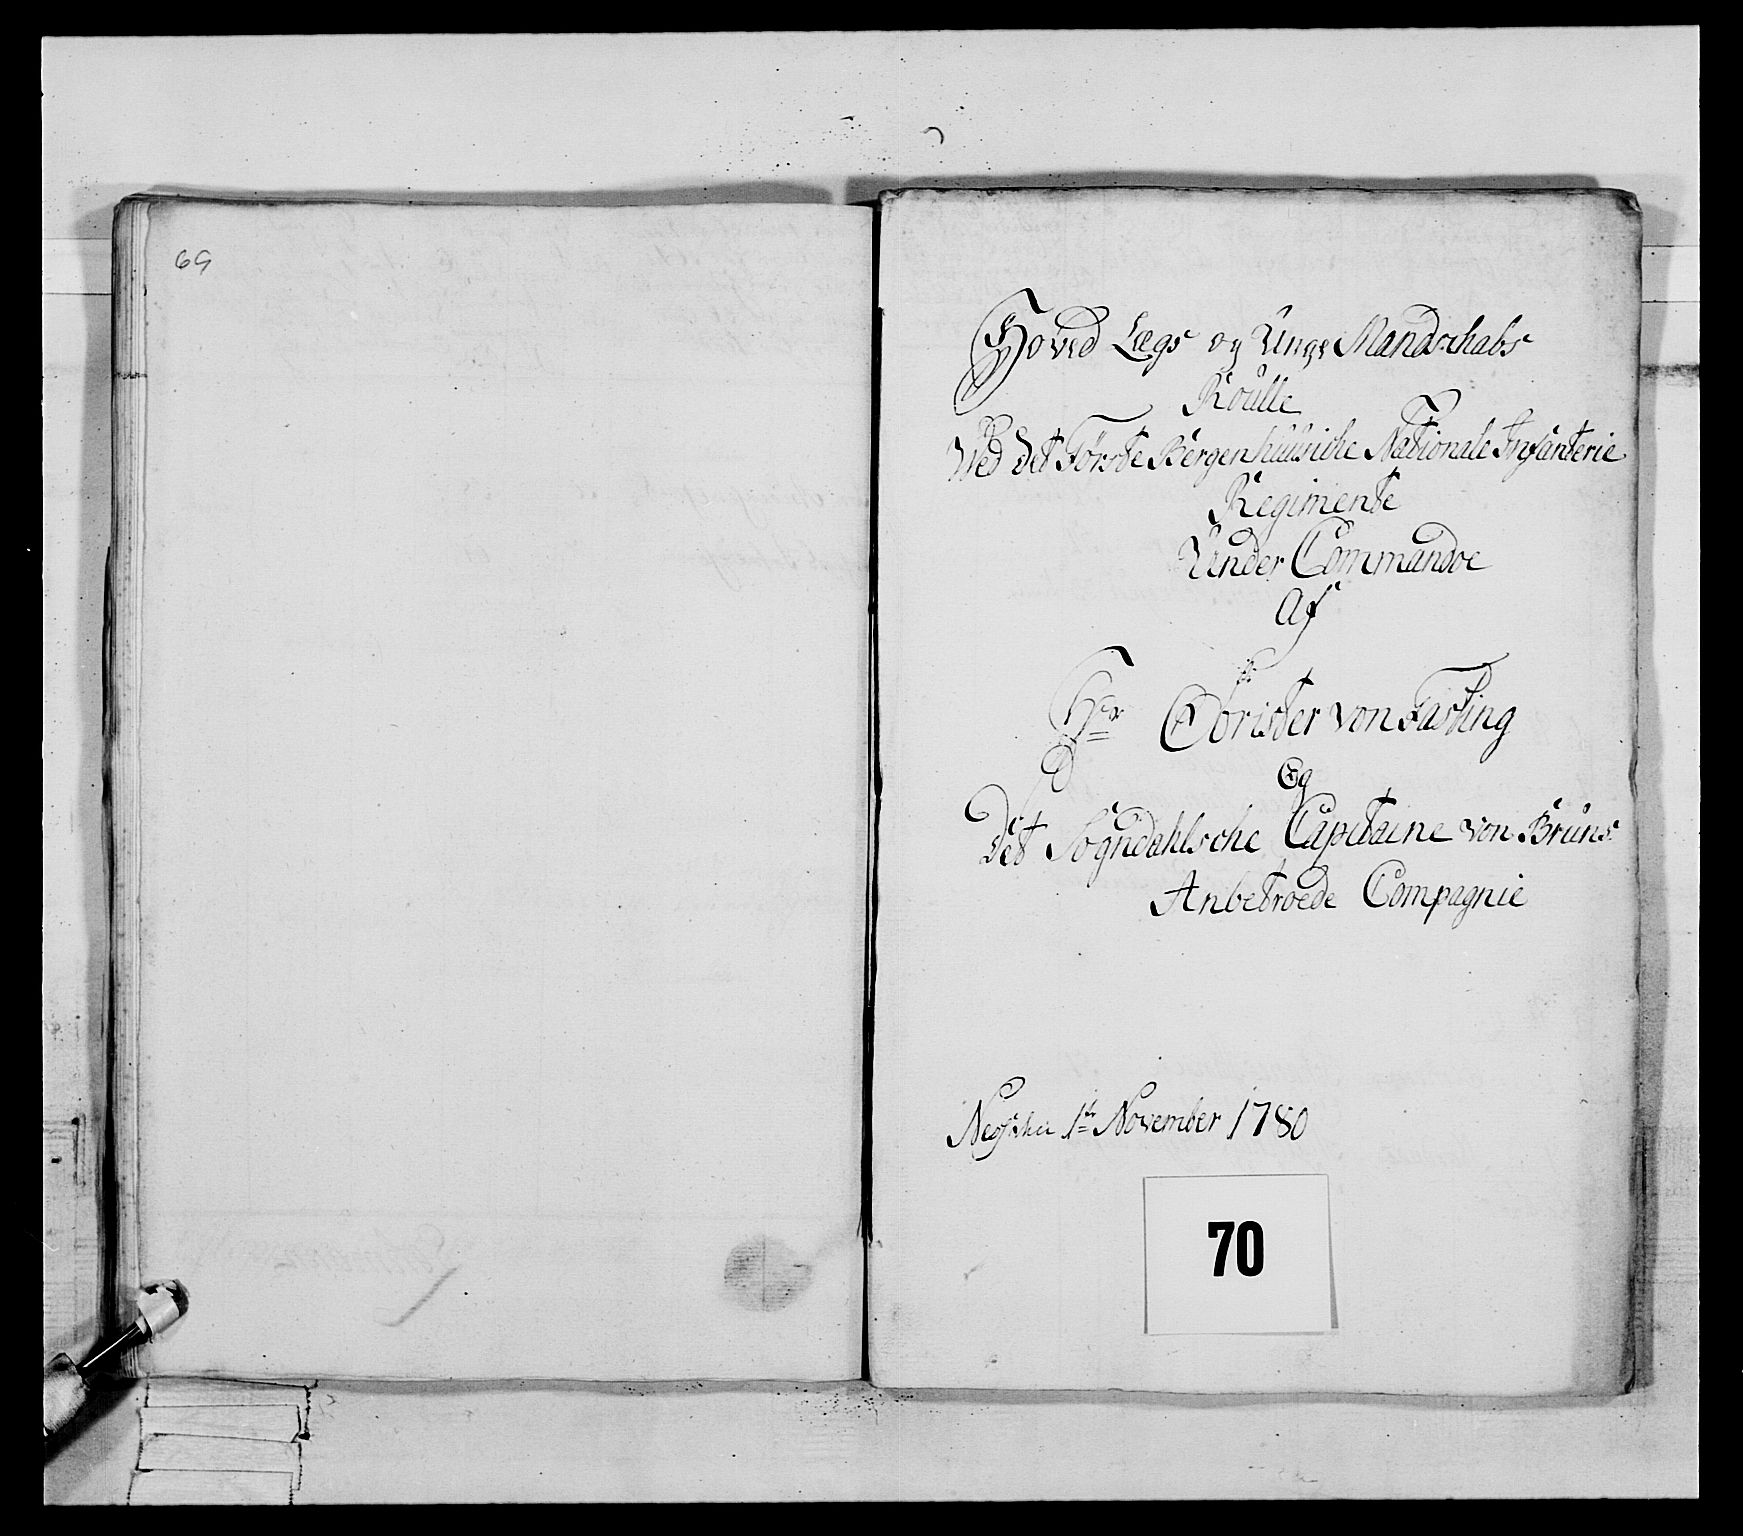 69
Hoved Lægs og Unge Mandschabs
Roulle
Wed det Første Bergenhuusiche Nationale Infanterie
Regimente
Under Commandoe
Af
Hr Obrister von Fasting
Og
Det Sogndahlsche Capitaine von Bruns
Anbetroede Compagnie
1te November 1780
70